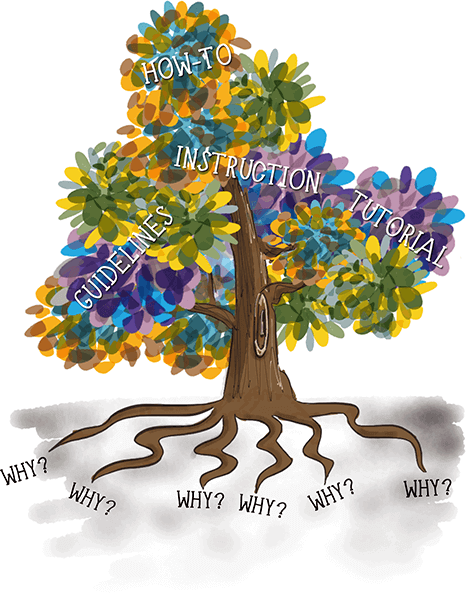 HOW-TO
INSTRUCTION
TUTORIAL
GUIDELINES
WHY?
WHY?
WHY?
WHY?
WHY?
WHY?